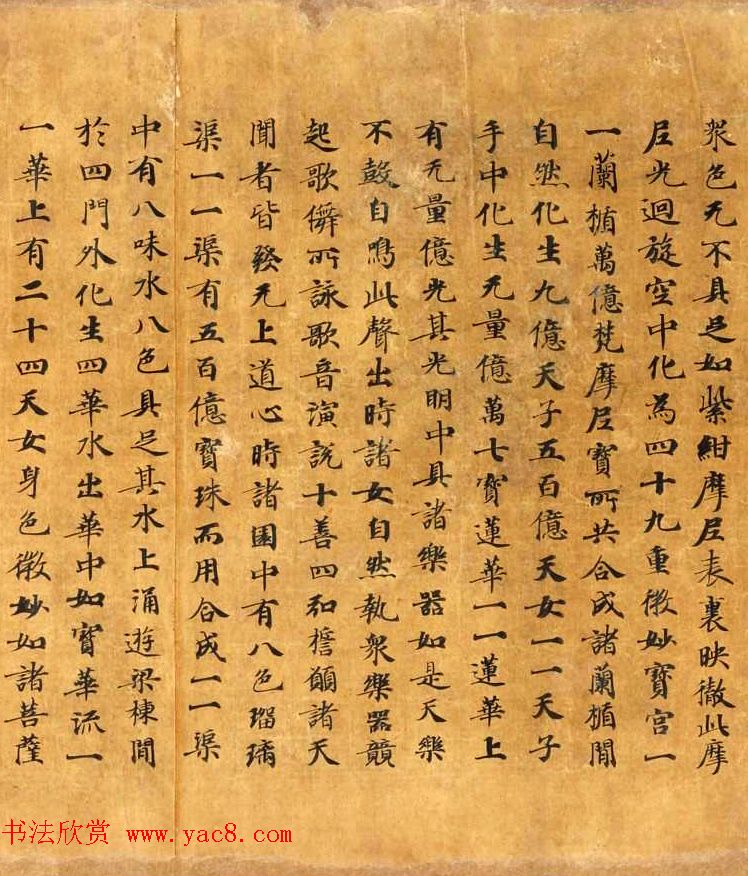 衆色无不具足如紫紺摩尼表裏映徹此摩
尼光迴旋空中化為四十九重微妙寶宮一
一蘭楯萬億梵摩尼寶所共合成諸蘭楯間
自然化生九億天子五百億天女一一天子
手中化生无量億萬七寶蓮華一一蓮華上
有无量億光其光明中具諸樂器如是天樂
不鼓自鳴此聲出時諸女自然執衆樂器競
起歌儛所詠歌音演說十善四弘誓願諸天
聞者皆發无上道心時諸園中有八色瑠璃
渠一一渠有五百億寶珠而用合成一一渠
中有八味水八色具足其水上涌遊梁棟間
於四門外化生四華水出華中如寶華流一
一華上有二十四天女身色微妙如諸菩薩
书法欣赏 www.yac8.com